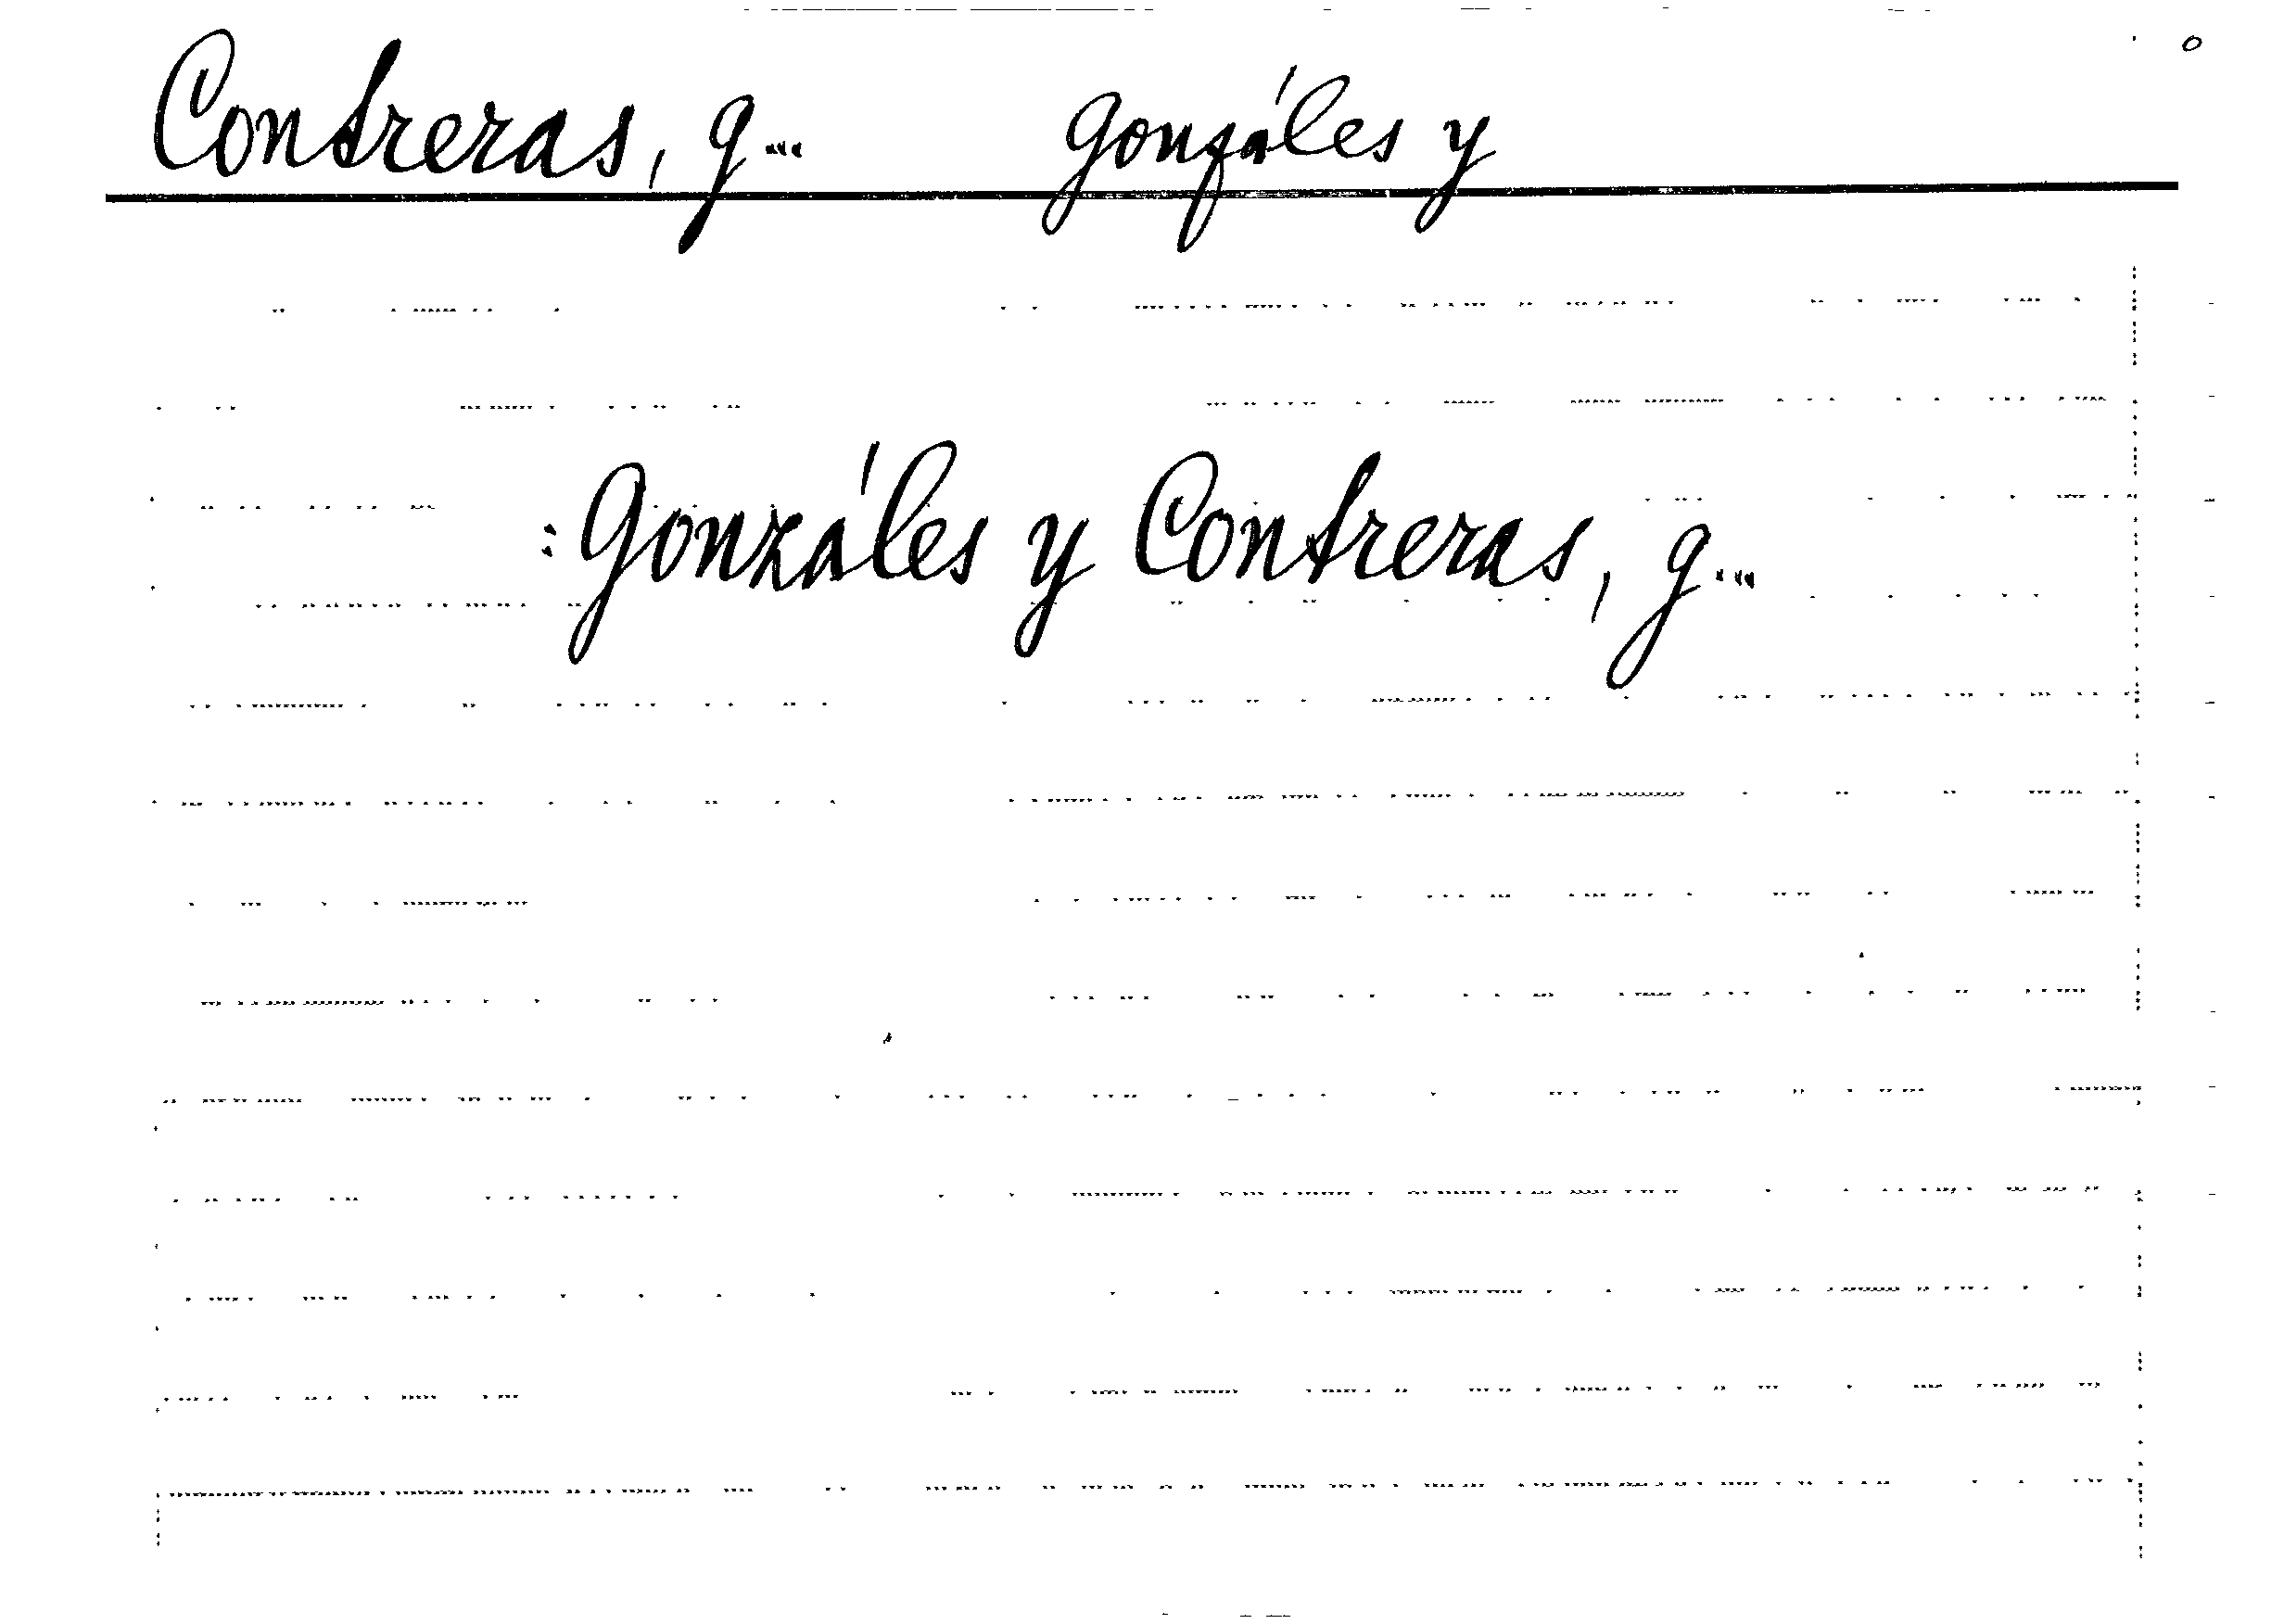 Contreras, G... Gonzáles y
: Gonzáles y Contreras, G...